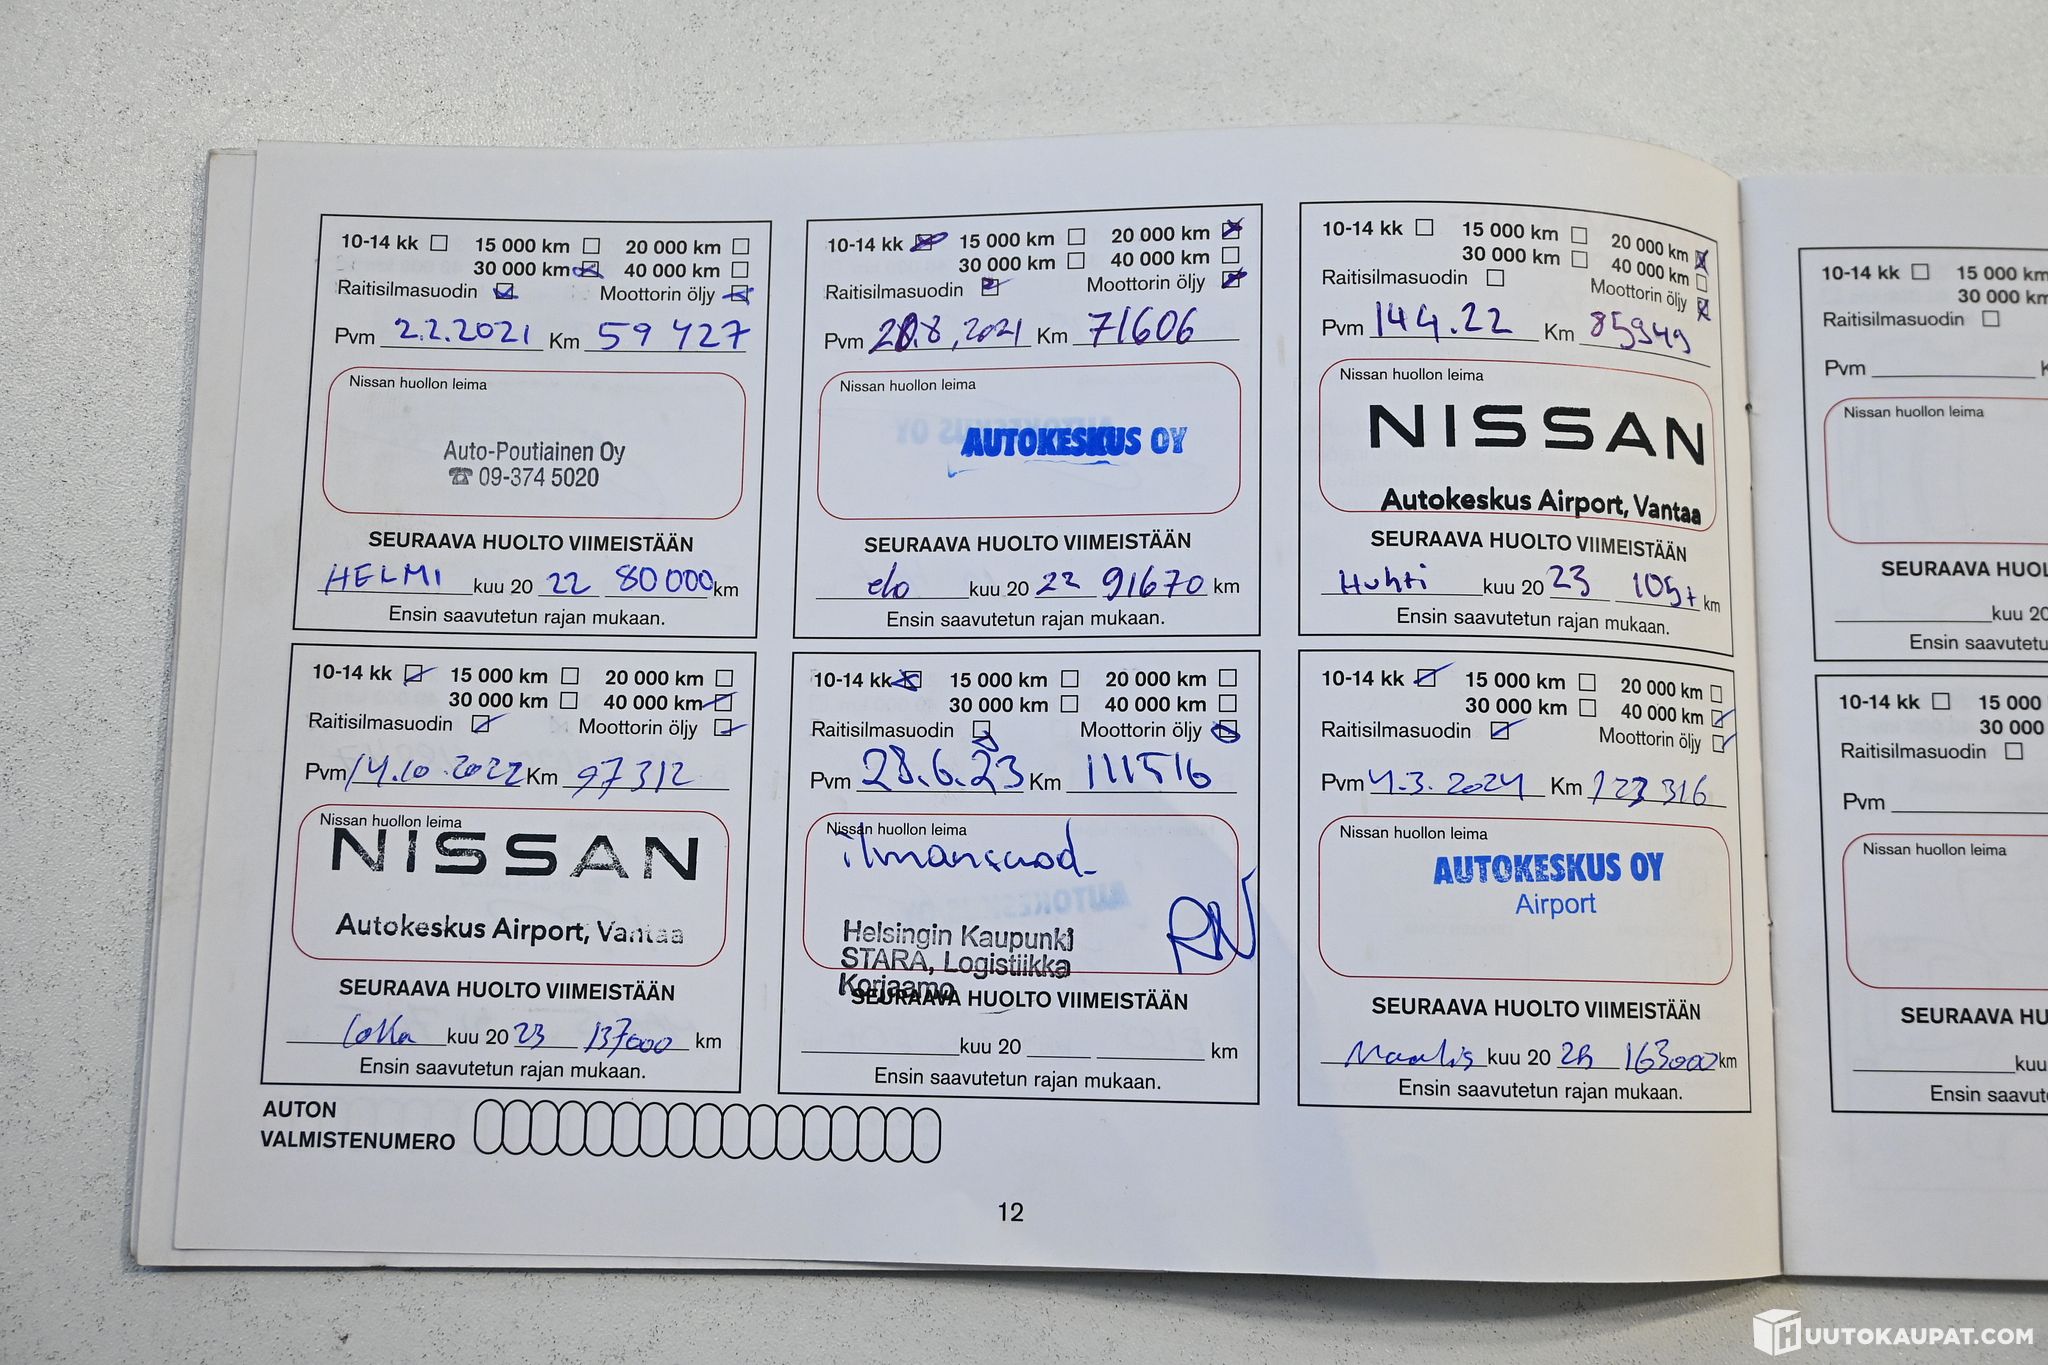 10-14 kk 15 000 km 20 000 km
30 000 km 40 000 km
Raitisilmasuodin Moottorin öljy
Pvm 2.2.2021 Km 59 427
Nissan huollon leima
Auto-Poutiainen Oy
☎ 09-374 5020
SEURAAVA HUOLTO VIIMEISTÄÄN
HELMI kuu 20 22 80 000 km
Ensin saavutetun rajan mukaan.
10-14 kk 15 000 km 20 000 km
30 000 km 40 000 km
Raitisilmasuodin Moottorin öljy
Pvm 8.2021 Km 71606
Nissan huollon leima
AUTOKESKUS OY
SEURAAVA HUOLTO VIIMEISTÄÄN
elo kuu 20 22 91670 km
Ensin saavutetun rajan mukaan.
10-14 kk 15 000 km 20 000 km
30 000 km 40 000 km
Raitisilmasuodin Moottorin öljy
Pvm 14 4.22 Km 85949
Nissan huollon leima
NISSAN
Autokeskus Airport, Vantaa
SEURAAVA HUOLTO VIIMEISTÄÄN
Huhti kuu 20 23 105t km
Ensin saavutetun rajan mukaan.
10-14 kk 15 000 km
30 000 km
Raitisilmasuodin
Pvm
Nissan huollon leima
SEURAAVA HUOL
kuu 20
Ensin saavutetun
10-14 kk 15 000 km 20 000 km
30 000 km 40 000 km
Raitisilmasuodin Moottorin öljy
Pvm 14.10.2022 Km 97312
Nissan huollon leima
NISSAN
Autokeskus Airport, Vantaa
SEURAAVA HUOLTO VIIMEISTÄÄN
Loka kuu 20 23 137000 km
Ensin saavutetun rajan mukaan.
10-14 kk 15 000 km 20 000 km
30 000 km 40 000 km
Raitisilmasuodin Moottorin öljy
Pvm 28.6.23 Km 111516
Nissan huollon leima
ilmansuod.
RN
Helsingin Kaupunki
STARA, Logistiikka
Korjaamo
SEURAAVA HUOLTO VIIMEISTÄÄN
kuu 20 km
Ensin saavutetun rajan mukaan.
10-14 kk 15 000 km 20 000 km
30 000 km 40 000 km
Raitisilmasuodin Moottorin öljy
Pvm 4.3.2024 Km 123 316
Nissan huollon leima
AUTOKESKUS OY
Airport
SEURAAVA HUOLTO VIIMEISTÄÄN
Maalis kuu 20 163000 km
Ensin saavutetun rajan mukaan.
10-14 kk 15 000
30 000
Raitisilmasuodin
Pvm
Nissan huollon leima
SEURAAVA HU
kuu
Ensin saavut
AUTON
VALMISTENUMERO
12
HUUTOKAUPAT.COM